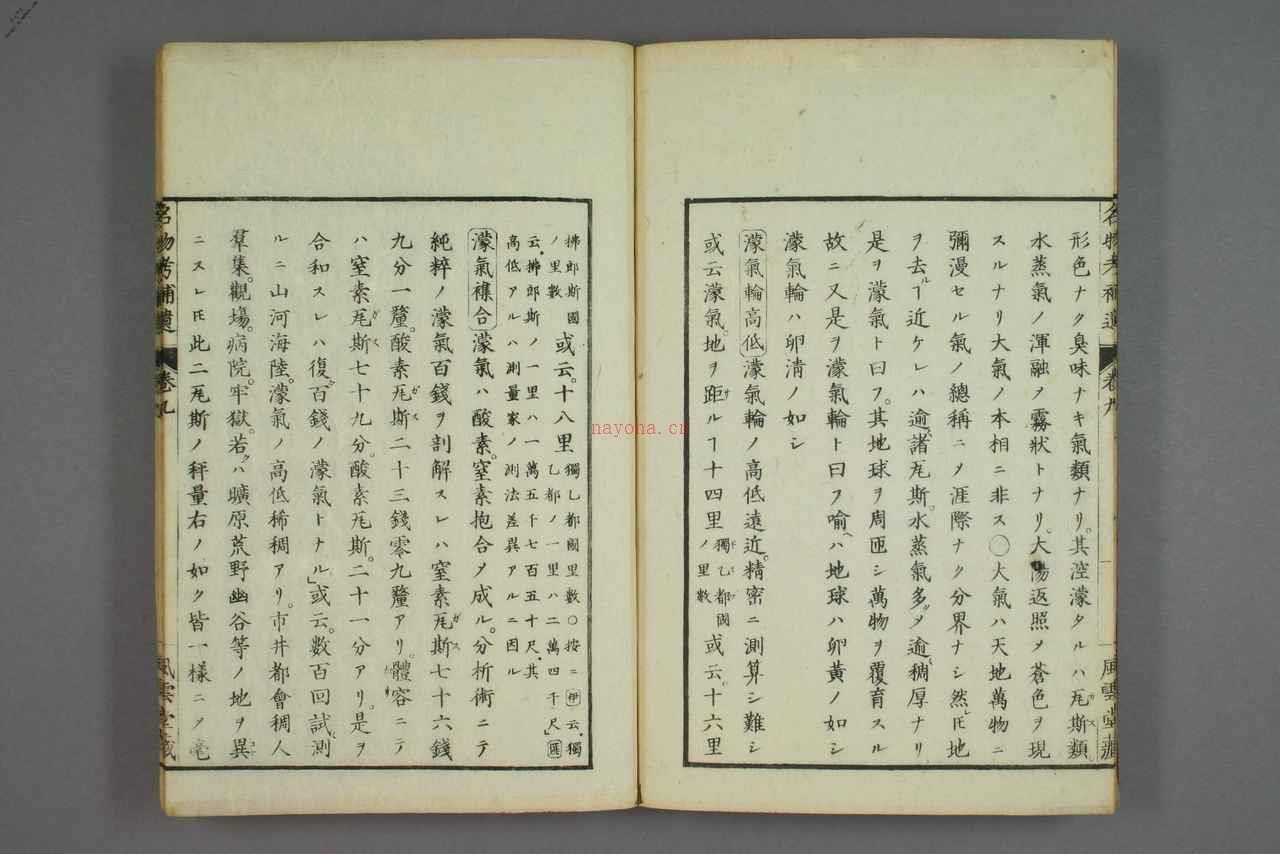 形色ナク臭味ナキ氣類ナリ。其涳濛タルハ瓦斯類。
水蒸氣ノ渾融〆霧狀トナリ。大陽返照〆蒼色ヲ現
スルナリ大氣ノ本相ニ非ス〇大氣ハ天地萬物ニ
彌漫セル氣ノ總稱ニ〆涯際ナク分界ナシ然𪜈地
ヲ去ルヿ近ケレハ逾諸瓦斯。水蒸氣多〆逾稠厚ナリ
是ヲ濛氣ト曰フ。其地球ヲ周匝シ萬物ヲ覆育スル
故ニ又是ヲ濛氣輪ト曰フ喩ヘハ地球ハ卵黃ノ如シ
濛氣輪ハ卵淸ノ如シ
濛氣輪高低 濛氣輪ノ高低遠近。精密ニ測算シ難シ
或云濛氣。地ヲ距ルヿ十四里 獨乙都國ノ里數 或云。十六里
拂郎斯國ノ里數 或云。十八里 獨乙都國里數〇按ニ伊云。獨乙都ノ一里ハ二萬四千尺」匯
云。拂郎斯ノ一里ハ一萬五千七百五十尺。其高低アルハ測量家ノ測法差異アルニ因ル
濛氣襍合 濛氣ハ酸素。窒素抱合〆成ル。分析術ニテ
純粹ノ濛氣百錢ヲ剖解スレハ窒素瓦斯七十六錢
九分一釐。酸素瓦斯二十三錢零九釐アリ。體容ニテ
ハ窒素瓦斯七十九分。酸素瓦斯。二十一分アリ。是ヲ
合和スレハ復百錢ノ濛氣トナル」或云。數百回試測
ルニ山河海陸。濛氣ノ高低稀稠アリ。市井都會稠人
羣集。觀場。病院。牢獄。若クハ曠原荒野幽谷等ノ地ヲ異
ニスレ𪜈此二瓦斯ノ秤量右ノ如ク皆一樣ニ〆毫
名物考補遺
卷九
風雲堂藏
名物考補遺
卷九
一
風雲堂藏
nayona.cn